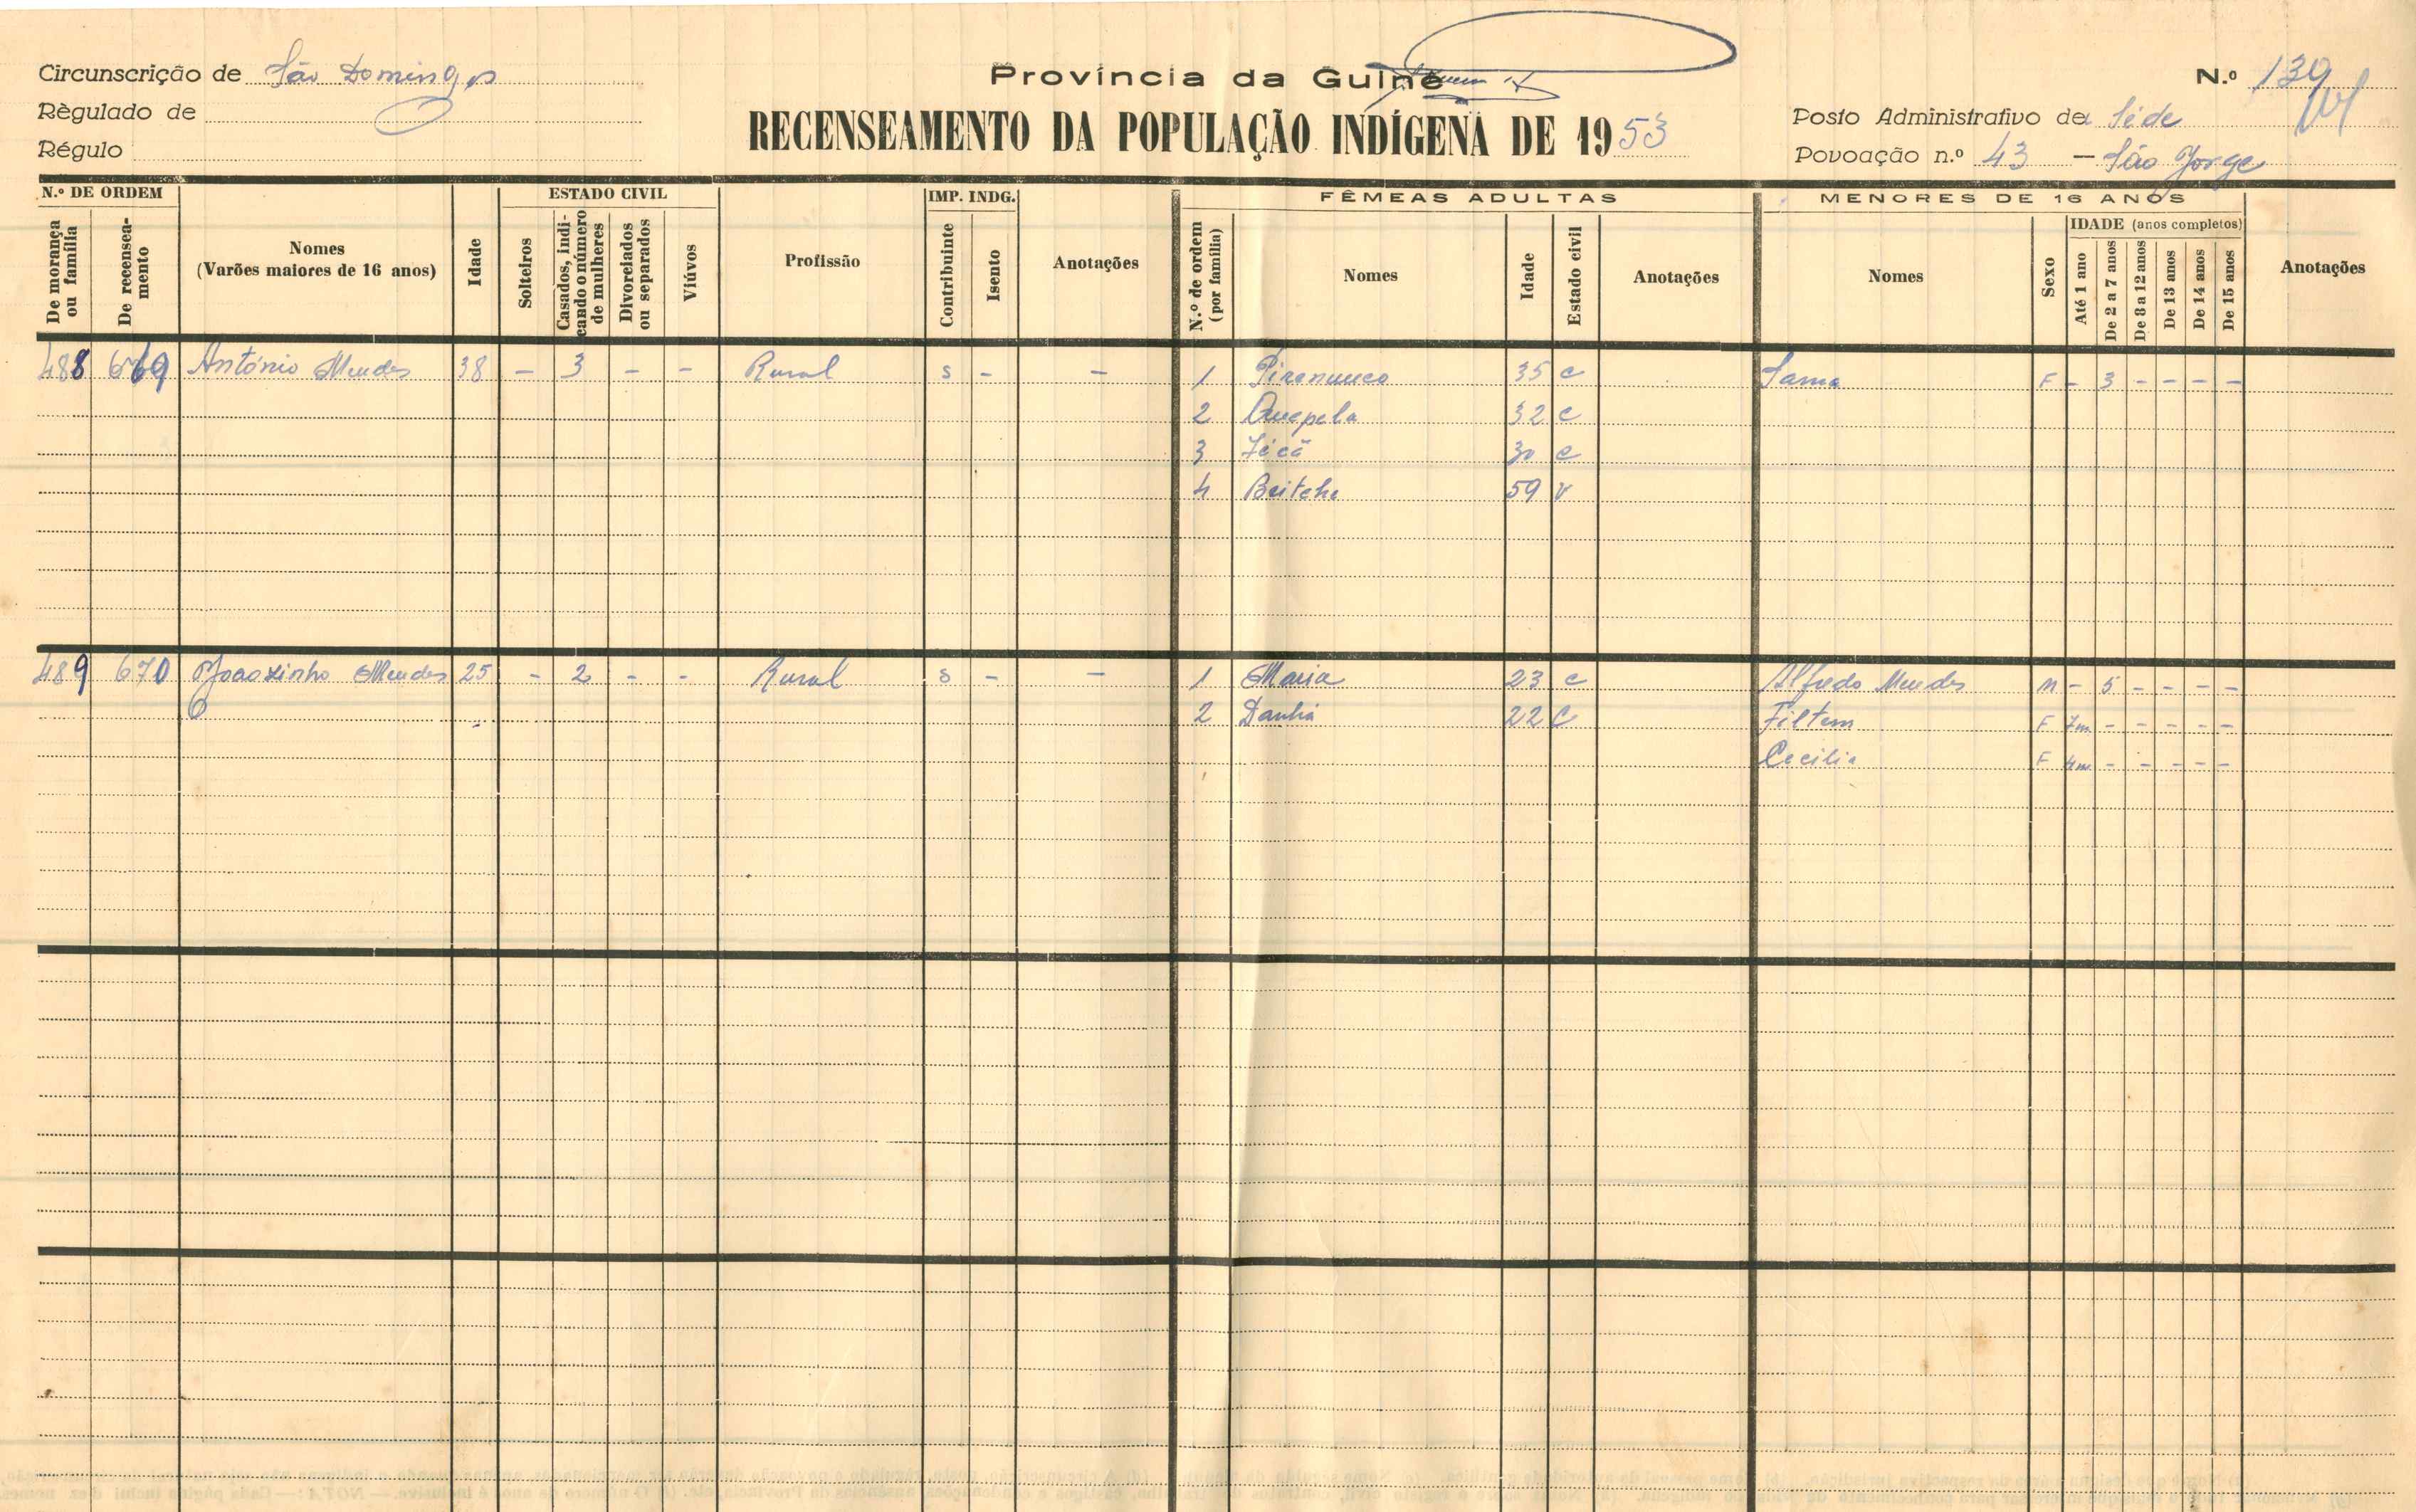 Circunscrição de São Domingos
Règulado de
Régulo
Província da Guiné
RECENSEAMENTO DA POPULAÇÃO INDÍGENA DE 1953
N.º 139
Posto Administrativo de Séde
Povoação n.º 43 – São Jorge
N.º DE ORDEM
De morança ou família
De recensea-mento
Nomes
(Varões maiores de 16 anos)
Idade
ESTADO CIVIL
Solteiros
Casados, indi-cando o número de mulheres
Divorciados ou separados
Viúvos
Profissão
IMP. INDG.
Contribuinte
Isento
Anotações
FÊMEAS ADULTAS
N.º de ordem (por família)
Nomes
Idade
Estado civil
Anotações
MENORES DE 16 ANOS
Nomes
Sexo
IDADE (anos completos)
Até 1 ano
De 2 a 7 anos
De 8 a 12 anos
De 13 anos
De 14 anos
De 15 anos
Anotações
488 669 António Mendes 38 – 3 – – Rural s – – 1 35 c Sama F – 3 – – – –
2 Quepela 32 c
3 30 c
4 59 v
489 670 Joaozinho Mendes 25 – 2 – – Rural s – – 1 Maria 23 c Alfredo Mendes M – 5 – – – –
2 Danhá 22 C Filtem F 7m – – – – –
Cecilia F 4m – – – – –